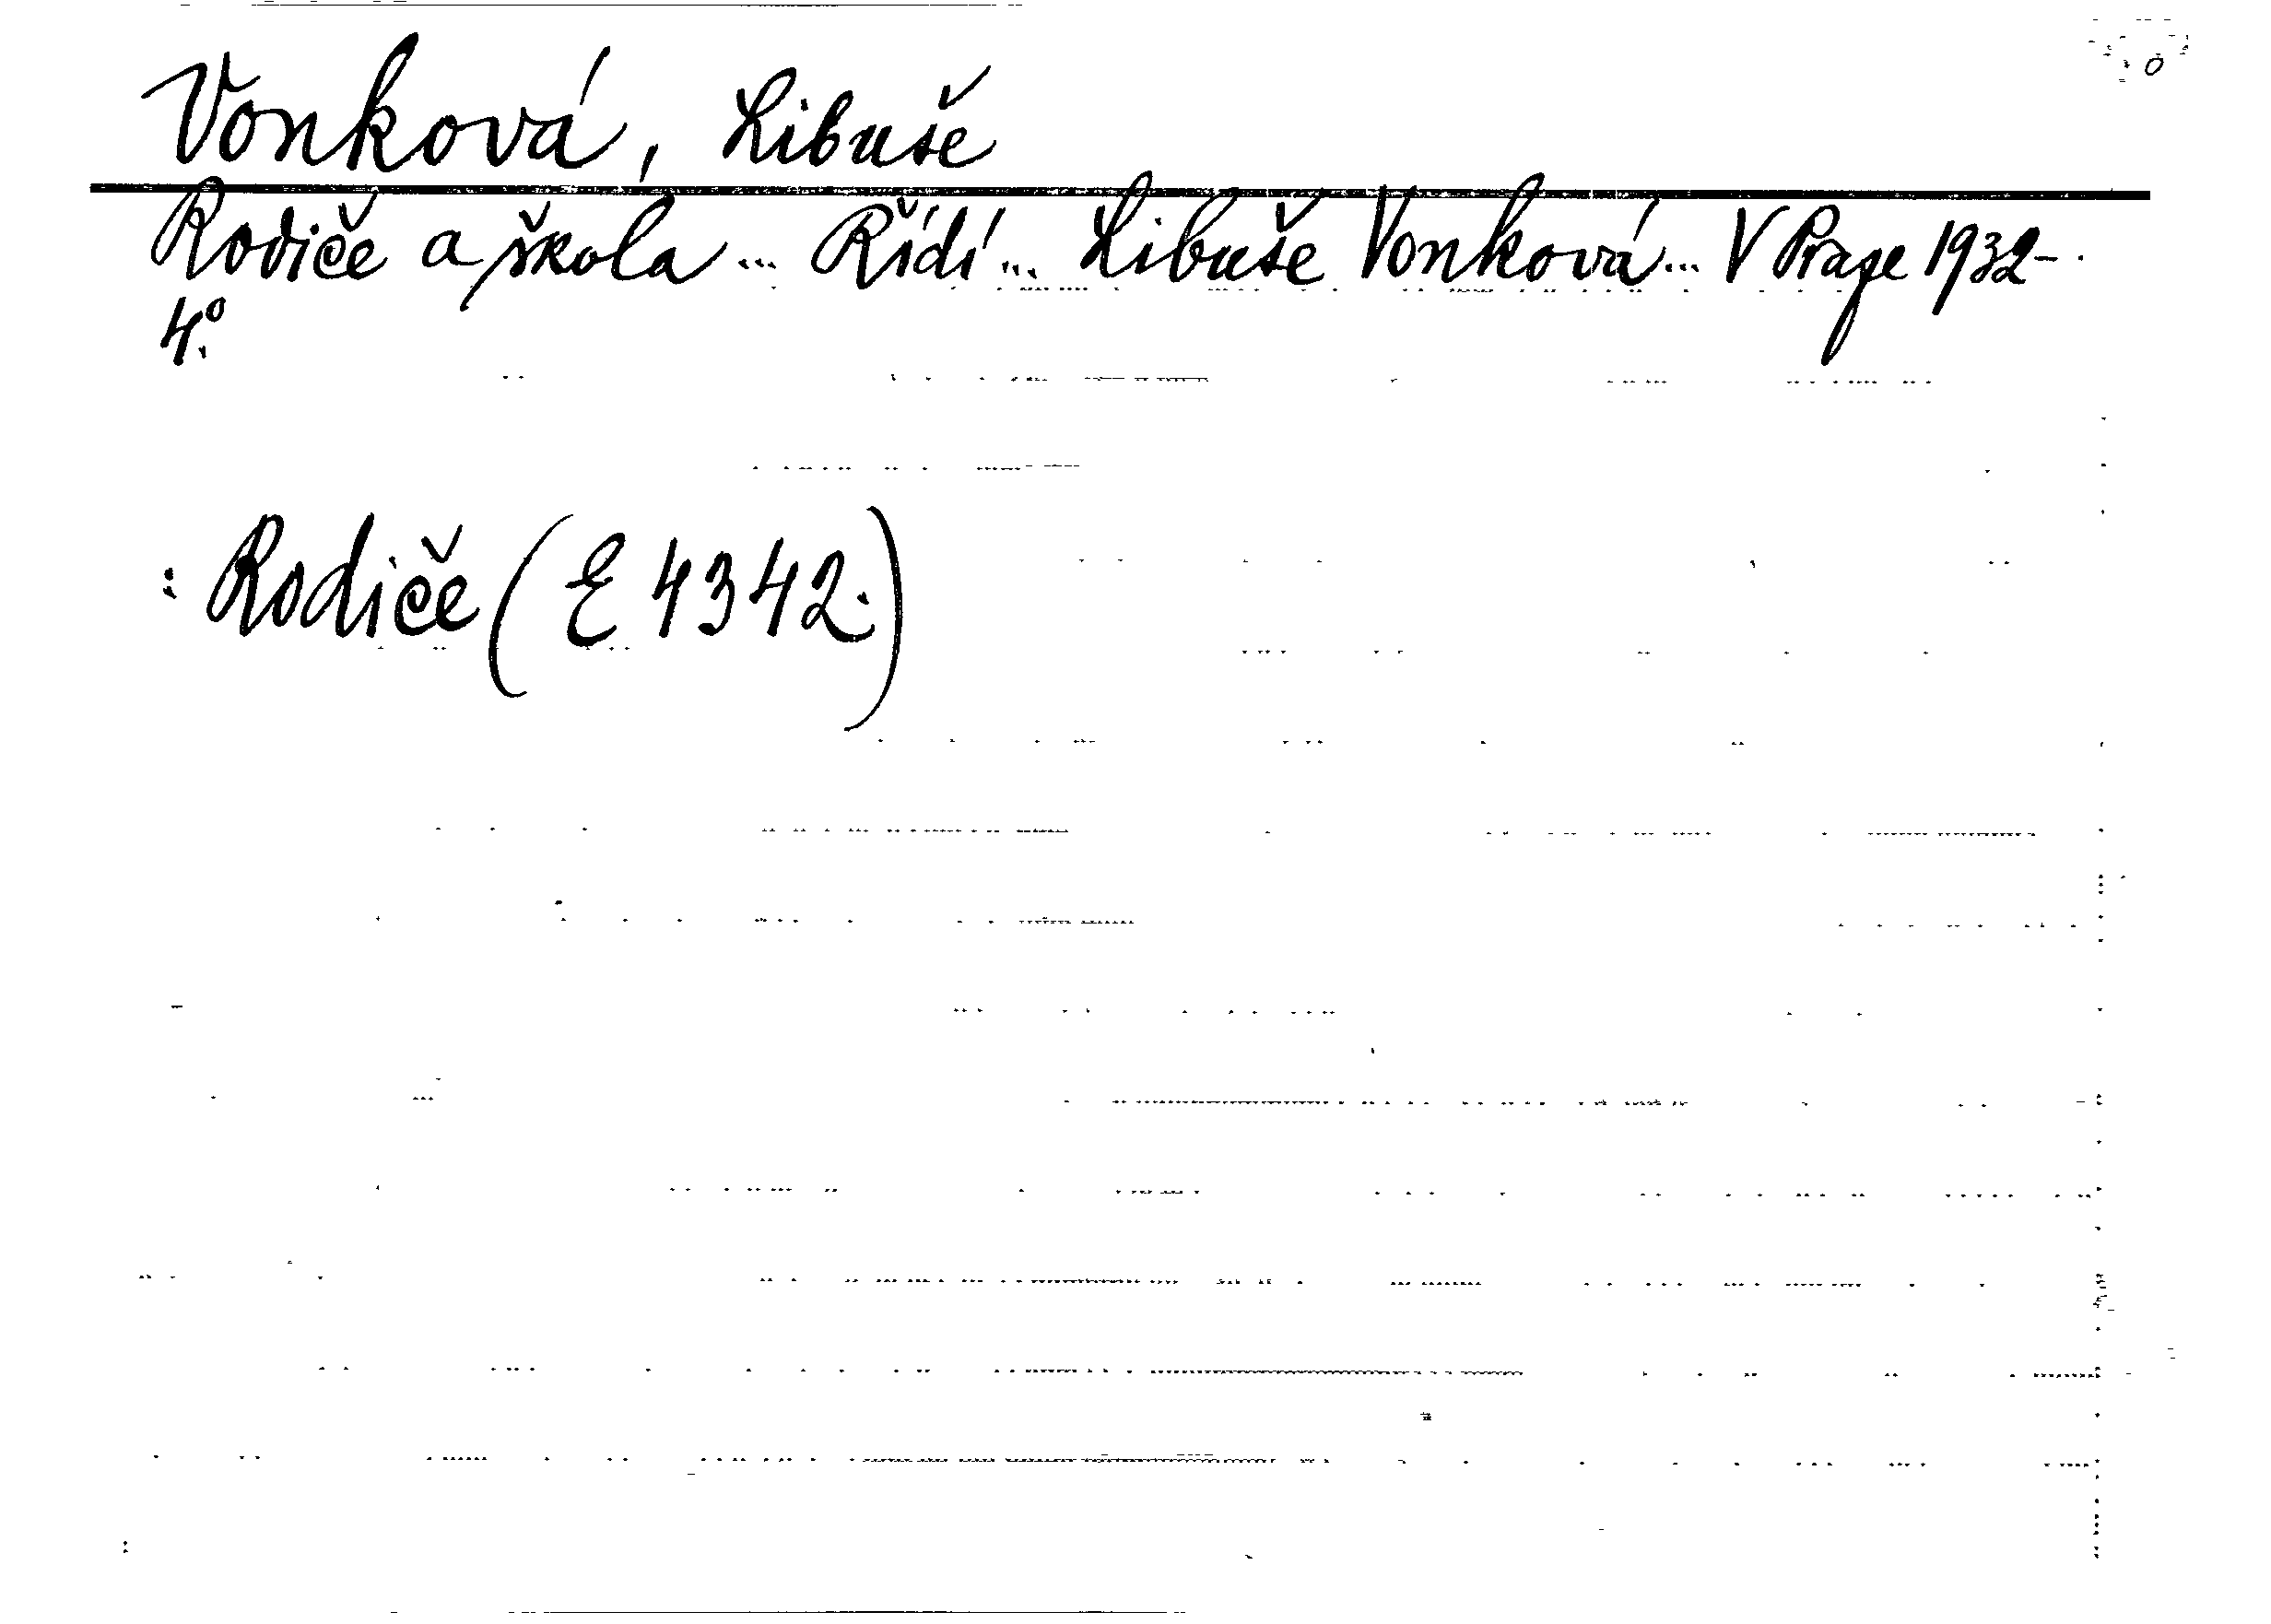 Vonková, Libuše
Rodiče a škola ... Řídí ... Libuše Vonková ... V Praze 1932-.
4.°
: Rodiče (E 4342.)